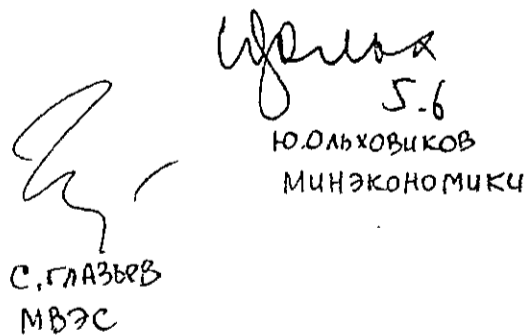 5-6
Ю.Ольховиков
Минэкономики
С.Глазьев
МВЭС